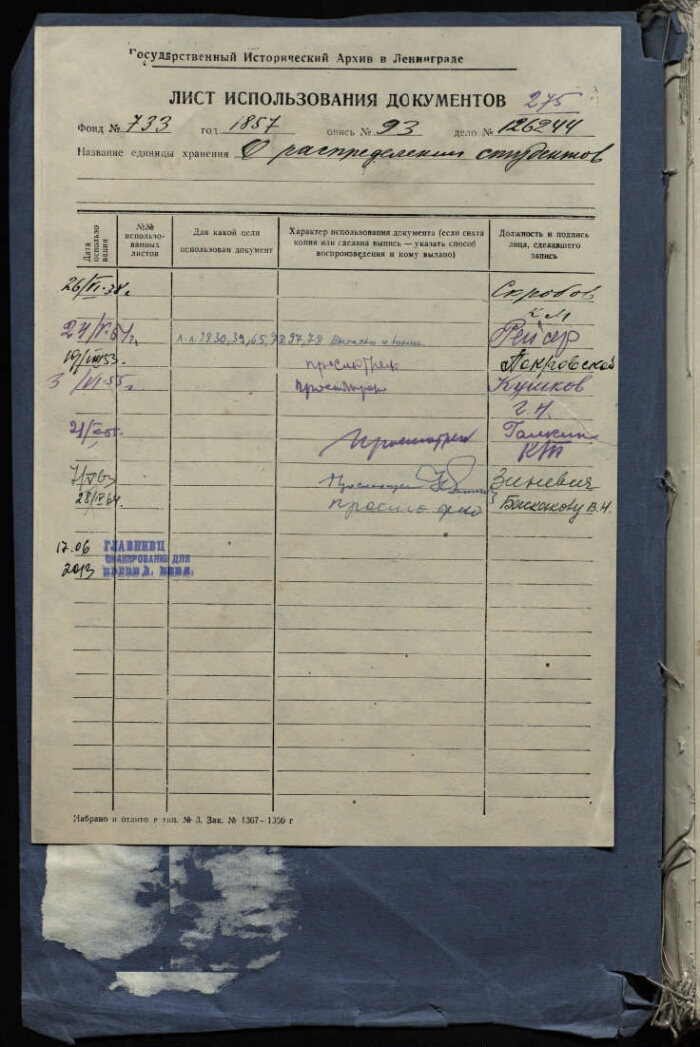 Государственный Исторический Архив в Ленинграде
ЛИСТ ИСПОЛЬЗОВАНИЯ ДОКУМЕНТОВ 275
Фонд № 733 год 1857 опись № 93 дело № 126244
Название единицы хранения О распределении студентов
Дата использования
№№ использованных листов
Для какой цели использован документ
Характер использования документа (если снята копия или сделана выпись — указать способ воспроизведения и кому выдано)
Должность и подпись лица, сделавшего запись
26/VI-38г. Скробов
К.М
Рейсер
19/VIII53. просмотрен Покровской
3/VI-55г. просмотрен Кушков
Г.Н.
просмотрен Галкин
КТ
Зиневич
28/IV64 Баскакову В.Н.
17.06 ГЛАВНИВЦ
2013 СКАНИРОВАНИЕ ДЛЯ
Набрано и отлито в тип. № 3. Зак. № 1367—1950 г